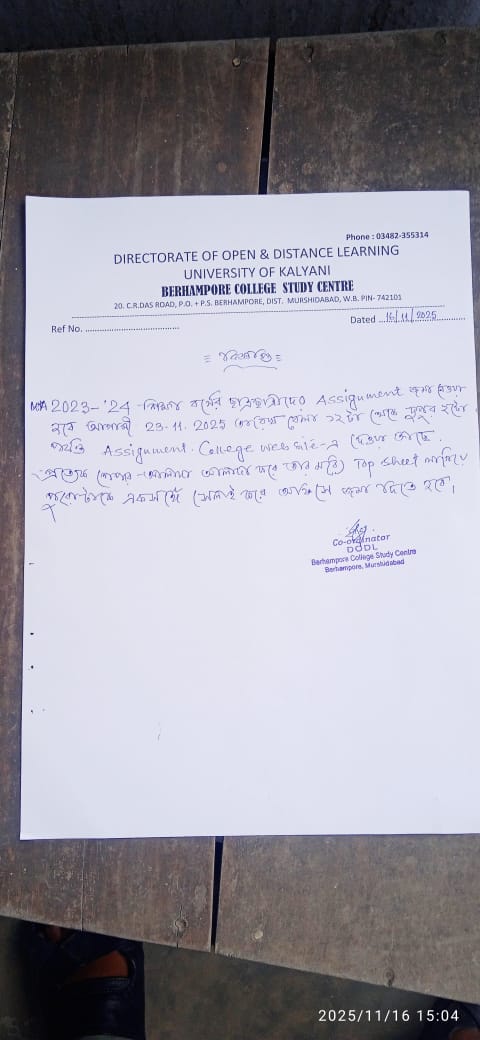 Phone : 03482-355314
DIRECTORATE OF OPEN & DISTANCE LEARNING
UNIVERSITY OF KALYANI
BERHAMPORE COLLEGE STUDY CENTRE
20. C.R.DAS ROAD, P.O. + P.S. BERHAMPORE, DIST. MURSHIDABAD, W.B. PIN- 742101
Ref No. ....................................
Dated ...16/11/2025.............
বিজ্ঞপ্তি
MA 2023-'24 শিক্ষা বর্ষের ছাত্রছাত্রীদের Assignment জমা নেওয়া
হবে আগামী 23.11.2025 তারিখ বেলা ১২টা থেকে দুপুর ২টো
পর্যন্ত Assignment. College web site-এ দেওয়া আছে.
প্রত্যেক পেপার আলাদা আলাদা করে তার মধ্যে Top sheet লাগিয়ে
পুরোটাকে একসঙ্গে সেলাই করে অফিসে জমা দিতে হবে।
Co-ordinator
DODL
Berhampore College Study Centre
Berhampore, Murshidabad
2025/11/16 15:04